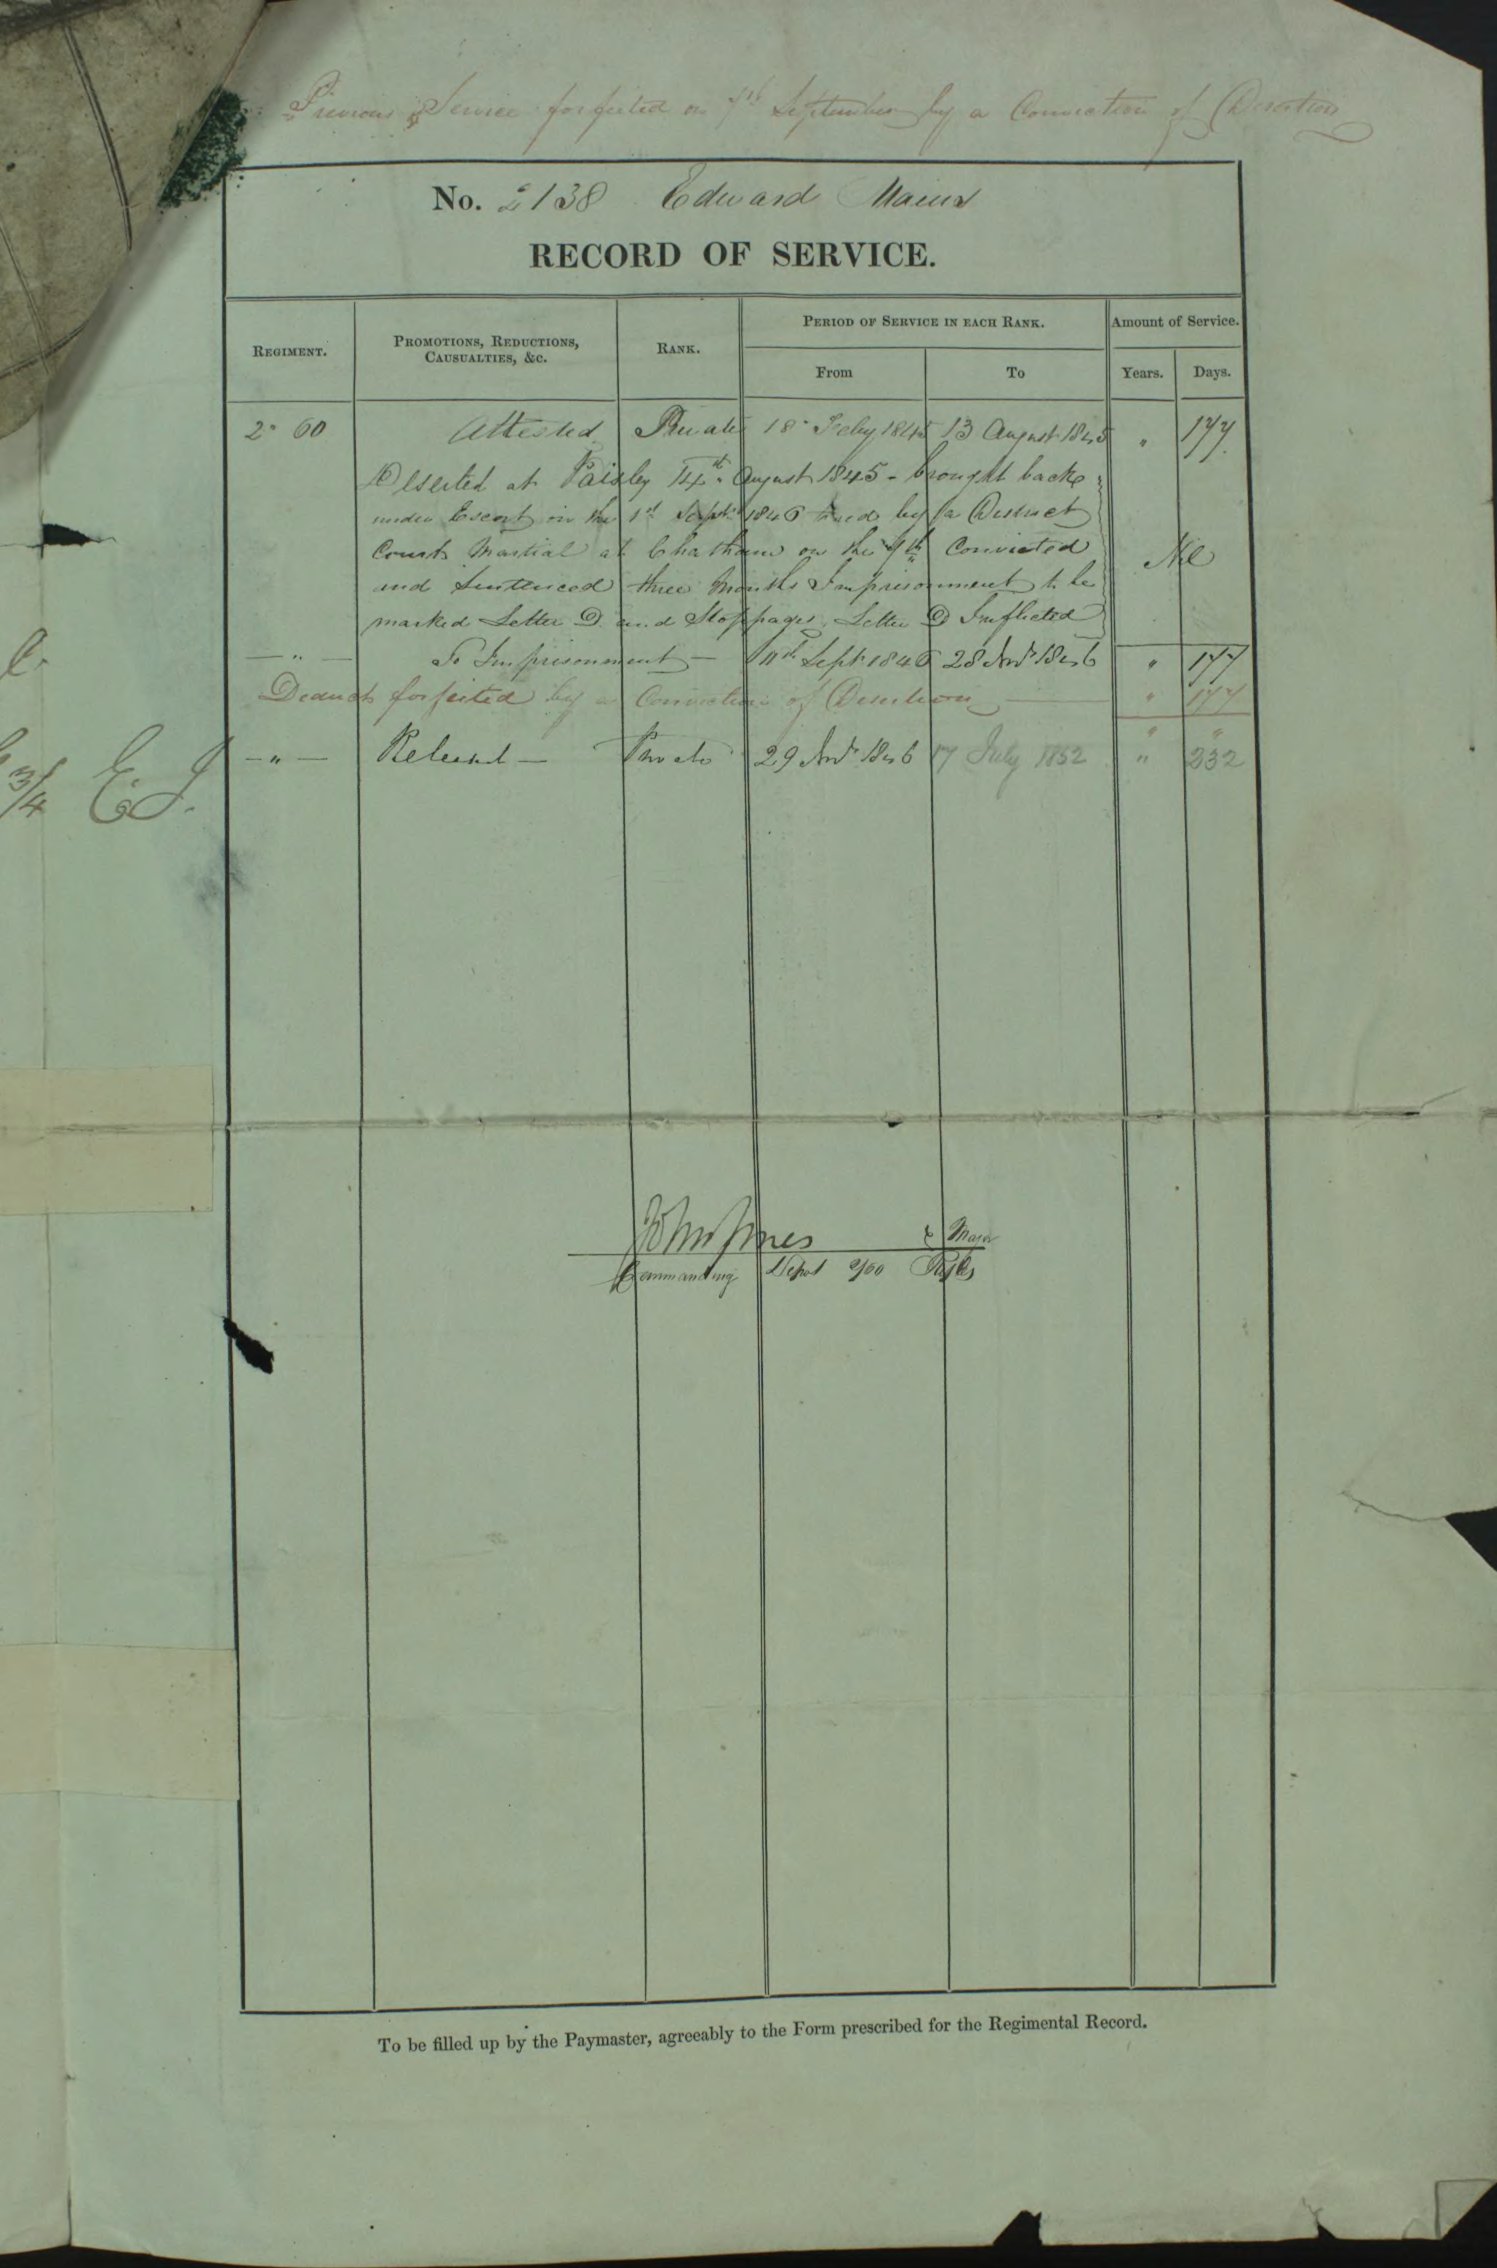 Previous Service forfeited on 7th September by a Conviction of Desertion
No. 2138 Edward
RECORD OF SERVICE.
REGIMENT. PROMOTIONS, REDUCTIONS, CAUSUALTIES, &c. RANK. PERIOD OF SERVICE IN EACH RANK. From To Amount of Service. Years. Days.
2" 60 Attested Private 18" Feby 1845 13 August 1845 " 177
Deserted at Paisley 14th August 1845 - brought back
under Escort on the 1st Septr 1846 tried by a District
Court Martial at Chatham on the 7th Convicted Nil
and Sentenced three Months Imprisonment to be
marked Letter D. and Stoppages, Letter D Inflicted
— " — To Imprisonment — Septr 1846 28 Novr 1846 " 177
Deduct forfeited by a Conviction of Desertion " 177
" "
— " — Released — Private 29 Novr 1846 17 July 1852 " 232
3/4 E.J.
John Jones Major
Commanding Depot 2/60 Rifles
To be filled up by the Paymaster, agreeably to the Form prescribed for the Regimental Record.